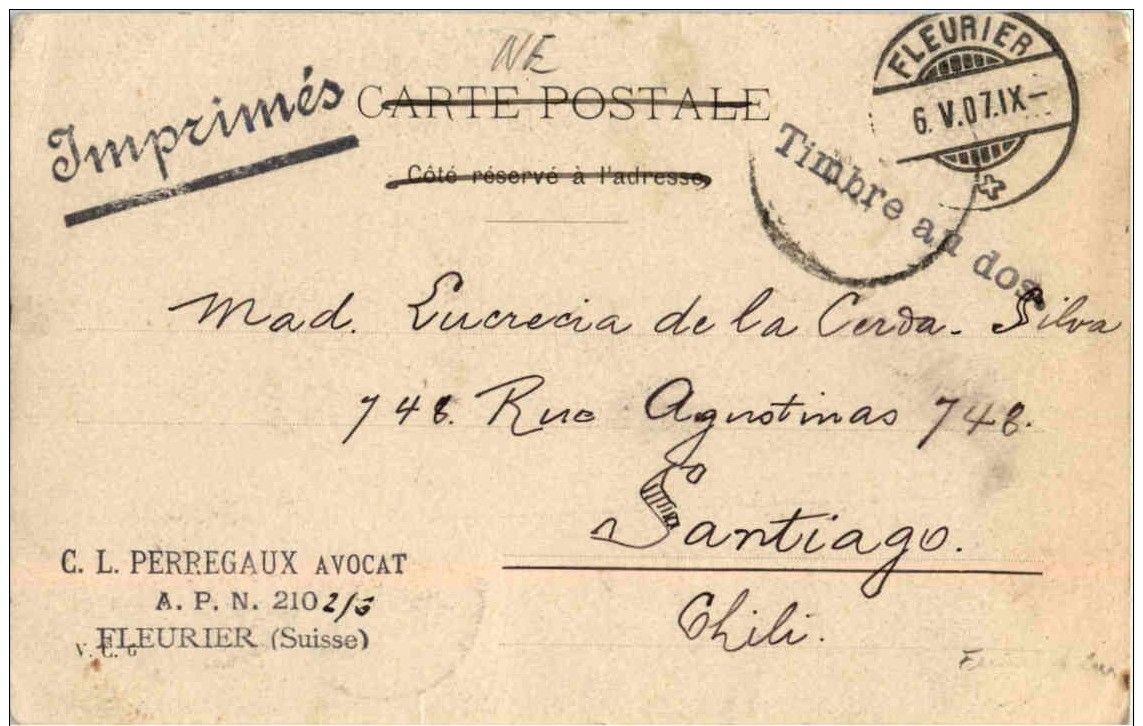 NE
Imprimés
CARTE POSTALE
Côté réservé à l'adresse
FLEURIER
6.V.07.IX-
Timbre au dos
Mad. Lucrecia de la Cerda. Silva
748. Rue Agustinas 748.
Santiago.
Chili.
C. L. PERREGAUX AVOCAT
A. P. N. 210
FLEURIER (Suisse)